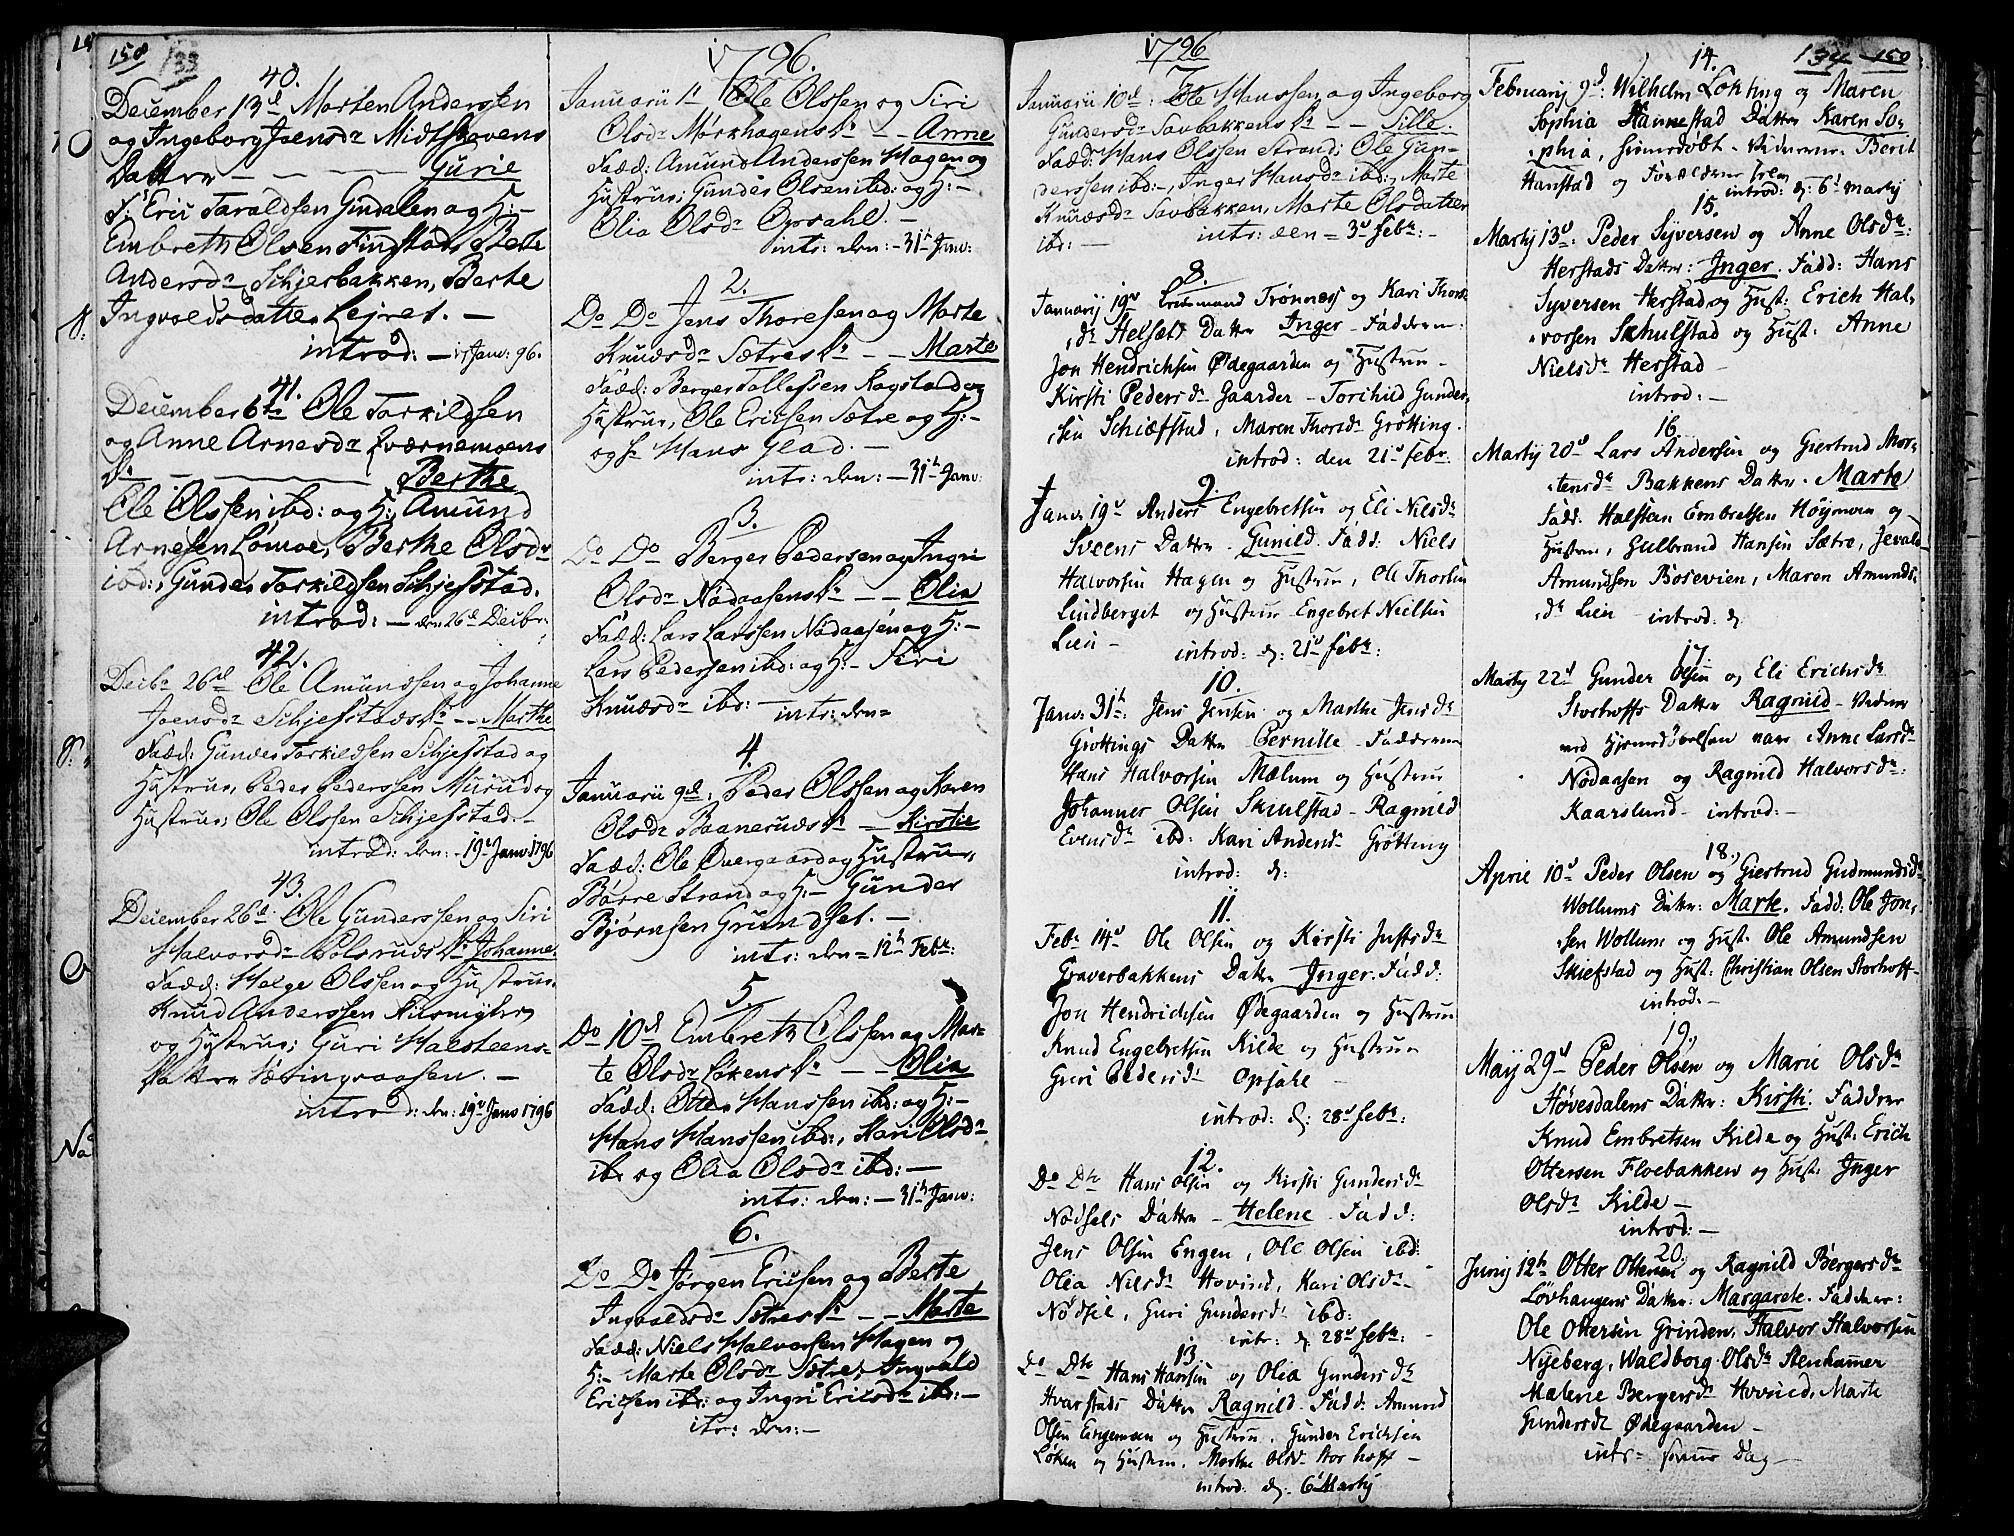 158 133
40.
December 13d Morten Andersen
og Ingeborg Joensdr Midtskovens
Datter - - - Gurie
F: Eric Taraldsen Gindalen og H:-
Embreth Olsen Tingstad, Berte
Andersdr Schjerbakken, Berte
Ingvoldsdatter Lejret. -
introd: - 17 Janv: 96.
41.
December 6te Ole Torkildsen
og Anne Arnesdr Qværnemoens
Dr - - - Berthe
Ole Olssen ibd: og H:, Amund
Arnesen Lømoe, Berthe Olsdr
ibd:, Gunder Torkildsen Schjefstad.
introd: - den 26d Decbr:
42.
Decbr 26d Ole Amundsen og Johanne
Joensdr Schjefstads Dr - - Marthe
Fadd: Gunder Torkildsen Schjefstad og
Hustrue, Peder Pederssen Murud og
Hustrue; Ole Olssen Schjefstad. -
introd: den: - 19d Janv: 1796
43.
December 26d: Ole Gunderssen og Siri
Halvorsdr Polsruds Dr Johanne.
Fadd: Helge Olssen og Hustrue,
Knud Anderssen
og Hustrue; Guri Halsteens-
Datter Væringsaasen. -
introd: den: 19d Janv 1796
1796.
Januarii 1t Ole Olssen og Siri
Olsdr Mørkhagens Dr - - Anne
Fadd: Amund Anderssen Hagen og
Hustrue; Gunder Olsen ibd: og H:-
Olia Olsdr Opsahl. -
intr: den: - 31te Janv:
2.
Do Do Jens Thoresen og Marte
Knudsdr Sætres Dr - - Marte
Fadd: Berger Tollefsen Ragstad og
Hustrue, Ole Ericsen Sætre og H:-
og Hr Hans Glad. -
intr: den: - 31te Janv:
3.
Do Do Berger Pedersen og Ingri
Olsdr Nødaasens Dr - - Olia
Fadd: Lars Larssen Nødaasen og H:-
Lars Pedersen ibd: og H:- Siri
Knudsdr ibd: - intr: den=
4.
Januarii 9d: Peder Olssen og Karen
Olsdr Baaneruds Dr - Kirstie
Fadd: Ole Overgaard og Hustrue,
Børre Strand og H:- Gunder
Bjørnsen Grundset. -
intr: den = 12te Febr:
5.
Do 10d Embreth Olssen og Mar-
te Olsdr Løkens Dr - - Olia
Fadd: Otter Hanssen ibd: og H:-
Hans Hanssen ibd:, Kari Olsdr
ibd: og Olia Olsdr ibd: -
intr: den: - 31te Janv:
6.
Do Do Jørgen Ericsen og Berte
Ingvaldsdr Sætres Dr - - Marte
Fadd: Niels Halvorsen Hagen og
H:- Marte Olsdr Sætre, Ingvald
Ericsen ibd: og Ingri Ericsdr ibd: -
itr: den: -
1796
7
Januarii 10d: Ole Hanssen og Ingeborg
Gundersdr Savbakkens Dr - - Sille.
Fadd: Hans Olssen Strand; Ole Gun-
derssen ibd: -, Inger Hansdr ibd:, Marte
Knudsdr Savbakken, Marte Olsdatter
ibd: - intr: den = 3d Febr: -
8.
Januarij 19d Trønnæs og Kari Thors-
dr Helsæt Datter Inger - Faddere:
Jon Hendrichsen Ødegaarden og Hustrue -
Kirsti Pedersdr Gaarder - Torchild Gunder-
sen Schiæfstad, Maren Thorsdr Grøtting.
introd: den 21d Febr:
9.
Janv. 19d Anders Engebretsen og Eli Nilsdr
Sveens Datter Gunild. Fadd: Niels
Halvorsen Hagen og Hustrue, Ole Thorsen
Lindberget og Hustrue Engebret Nielsen
Lien - introd: d: 21d Febr:
10.
Janv. 31te: Jens Jensen og Marthe Jensdr
Grøttings Datter Pernille - Faddere
Hans Halvorsen Mælum og Hustrue
Johannes Olsen Skulstad - Ragnild
Evensdr ibd: Kari Andersdr Grøtting
introd: d:
11.
Febr 14d Ole Olsen og Kirsti Justsdr
Graverbakkens Datter Inger. Fadd:
Jon Hendrichsen Ødegaarden og Hustrue
Knud Engebretsen Kilde og Hustrue
Guri Pedersdr Opsahl -
introd: d: 28d Febr:
12.
Do Dto Hans Olsen og Kirsti Gundersdr
Nødsels Datter - Helene - Fadd:
Jens Olsen Engen, Ole Olsen ibd:
Olia Nilsdr Hovind, Kari Olsdr
Nødsel, Guri Gundersdr ibd:
intr: d: 28d Febr: -
13
Do Dto Hans Hansen og Olia Gundersdr
Hvarstads Datter Ragnild - Fadd: Amund
Olsen Engemoen og Hustrue, Gunder Erichsen
Løken og Hustrue, Marthe Olsdr Storhoff -
introd. d. 6t Martij
134 159
14.
Februarij 9d: Wilhelm Løkting og Maren
Sophia Hannestad Datter Karen So-
phia, hiemdøbt - Viderne: Berit
Hanstad og Forældrene selv
introd: d: 6t Martij
15.
Martij 13d: Peder Syversen og Anne Olsdr:
Herstads Datter: Inger. Fadd: Hans
Syversen Herstad og Hust: Erich Hal-
vorsen Schulstad og Hust: Anne
Nielsdr Herstad -
introd: -
16
Martij 20d Lars Andersen og Giertrud Mor-
tensdr Bakkens Datter - Marte
Fadd: Halsteen Embretsen Høijmoen og -
Hustrue, Gulbrand Hansen Sætre, Jevald
Amundsen Bosevien, Maren Amunds-
dr Lien - introd: d
17
Martij 22d Gunder Olsen og Eli Erichsdr
Storhoffs Datter Ragnild - Viderne
ved Hjemdøbelsen vare Anne Larsdr
Nødaasen og Ragnild Halvorsdr:
Kaarslund - introd: -
18.
April 10d Peder Olsen og Giertrud Gudmundsdr
Wollums Datter: Marte. Fadd: Ole Jon-
sen Wollum og Hust. Ole Amundsen
Skiefstad og Hust: Christian Olsen Storhoff -
introd: -
19.
Maij 29d Peder Olsen og Marie Olsdr
Høvesdalens Datter: Kirsti. Faddere
Knud Embretsen Kilde og Hust: Erich
Ottersen Floebakken og Hust: Inger
Olsdr Kilde -
introd: -
20.
Junij 12te Otter Ottersen og Ragnild Bergersdr
Løvhaugens Datter: Margarete. Faddere:
Ole Ottersen Grinden, Halvor Halvorsen
Nyeberg, Waldborg Olsdr Stenhamer
Malene Bergersdr Hovind, Marte
Gundersdr Ødegaarden -
intr: samme Dag -